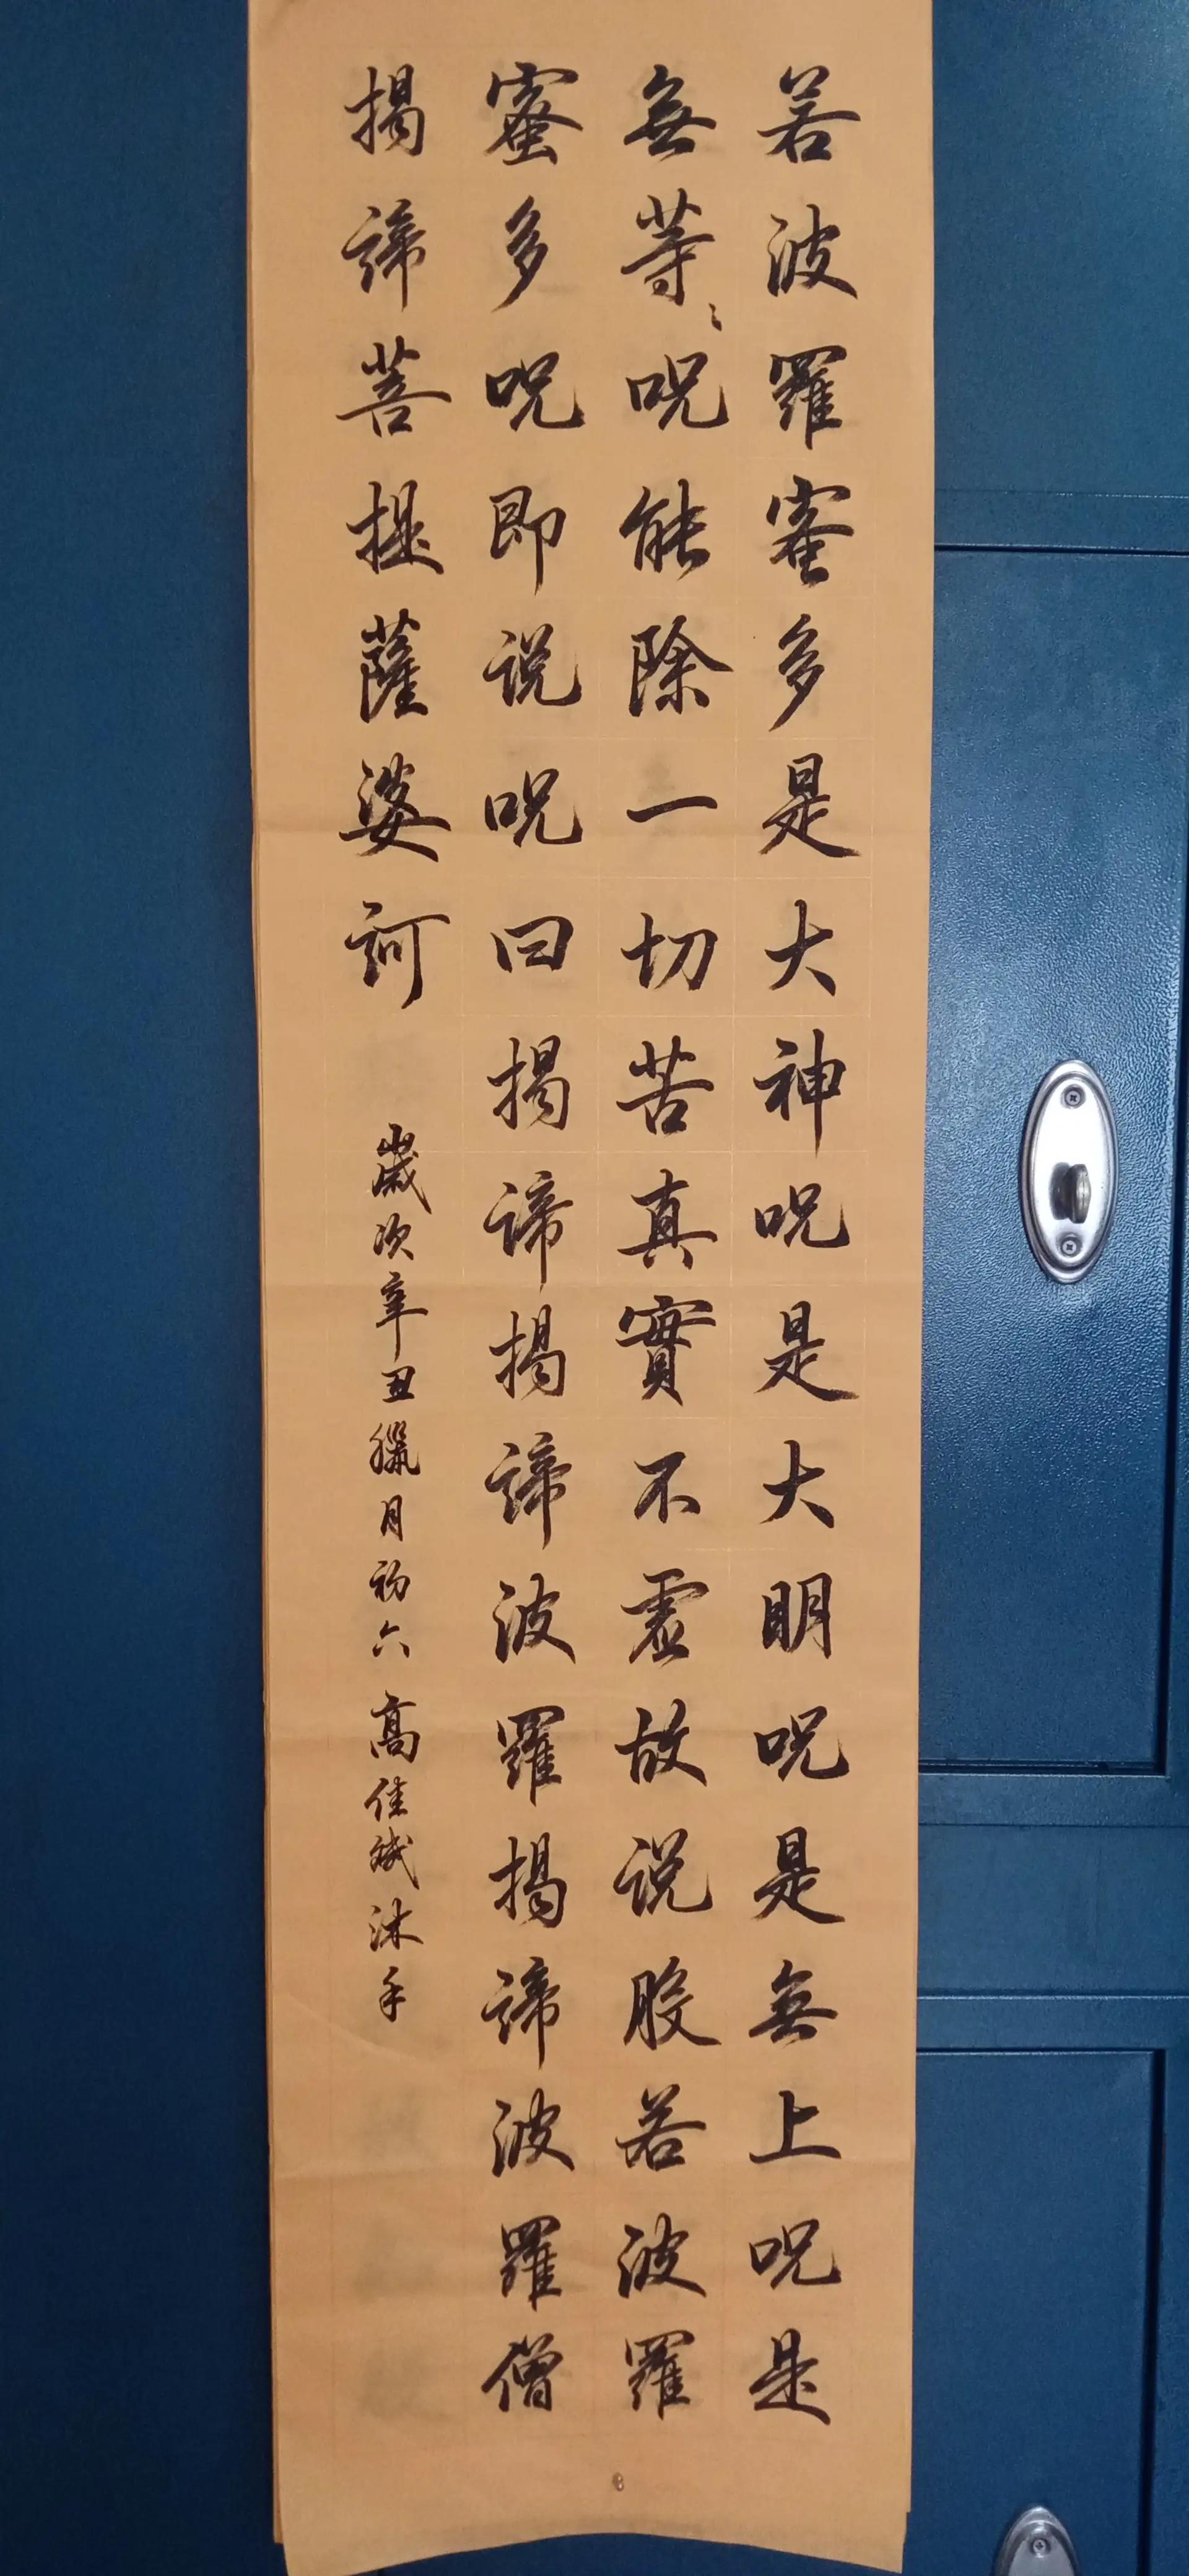 若波羅蜜多是大神呪是大明呪是無上呪是
無等〻呪能除一切苦真實不虛故说般若波羅
蜜多呪即说呪曰揭諦揭諦波羅揭諦波羅僧
揭諦菩提薩婆訶
歲次辛丑臘月初六高佳斌沐手